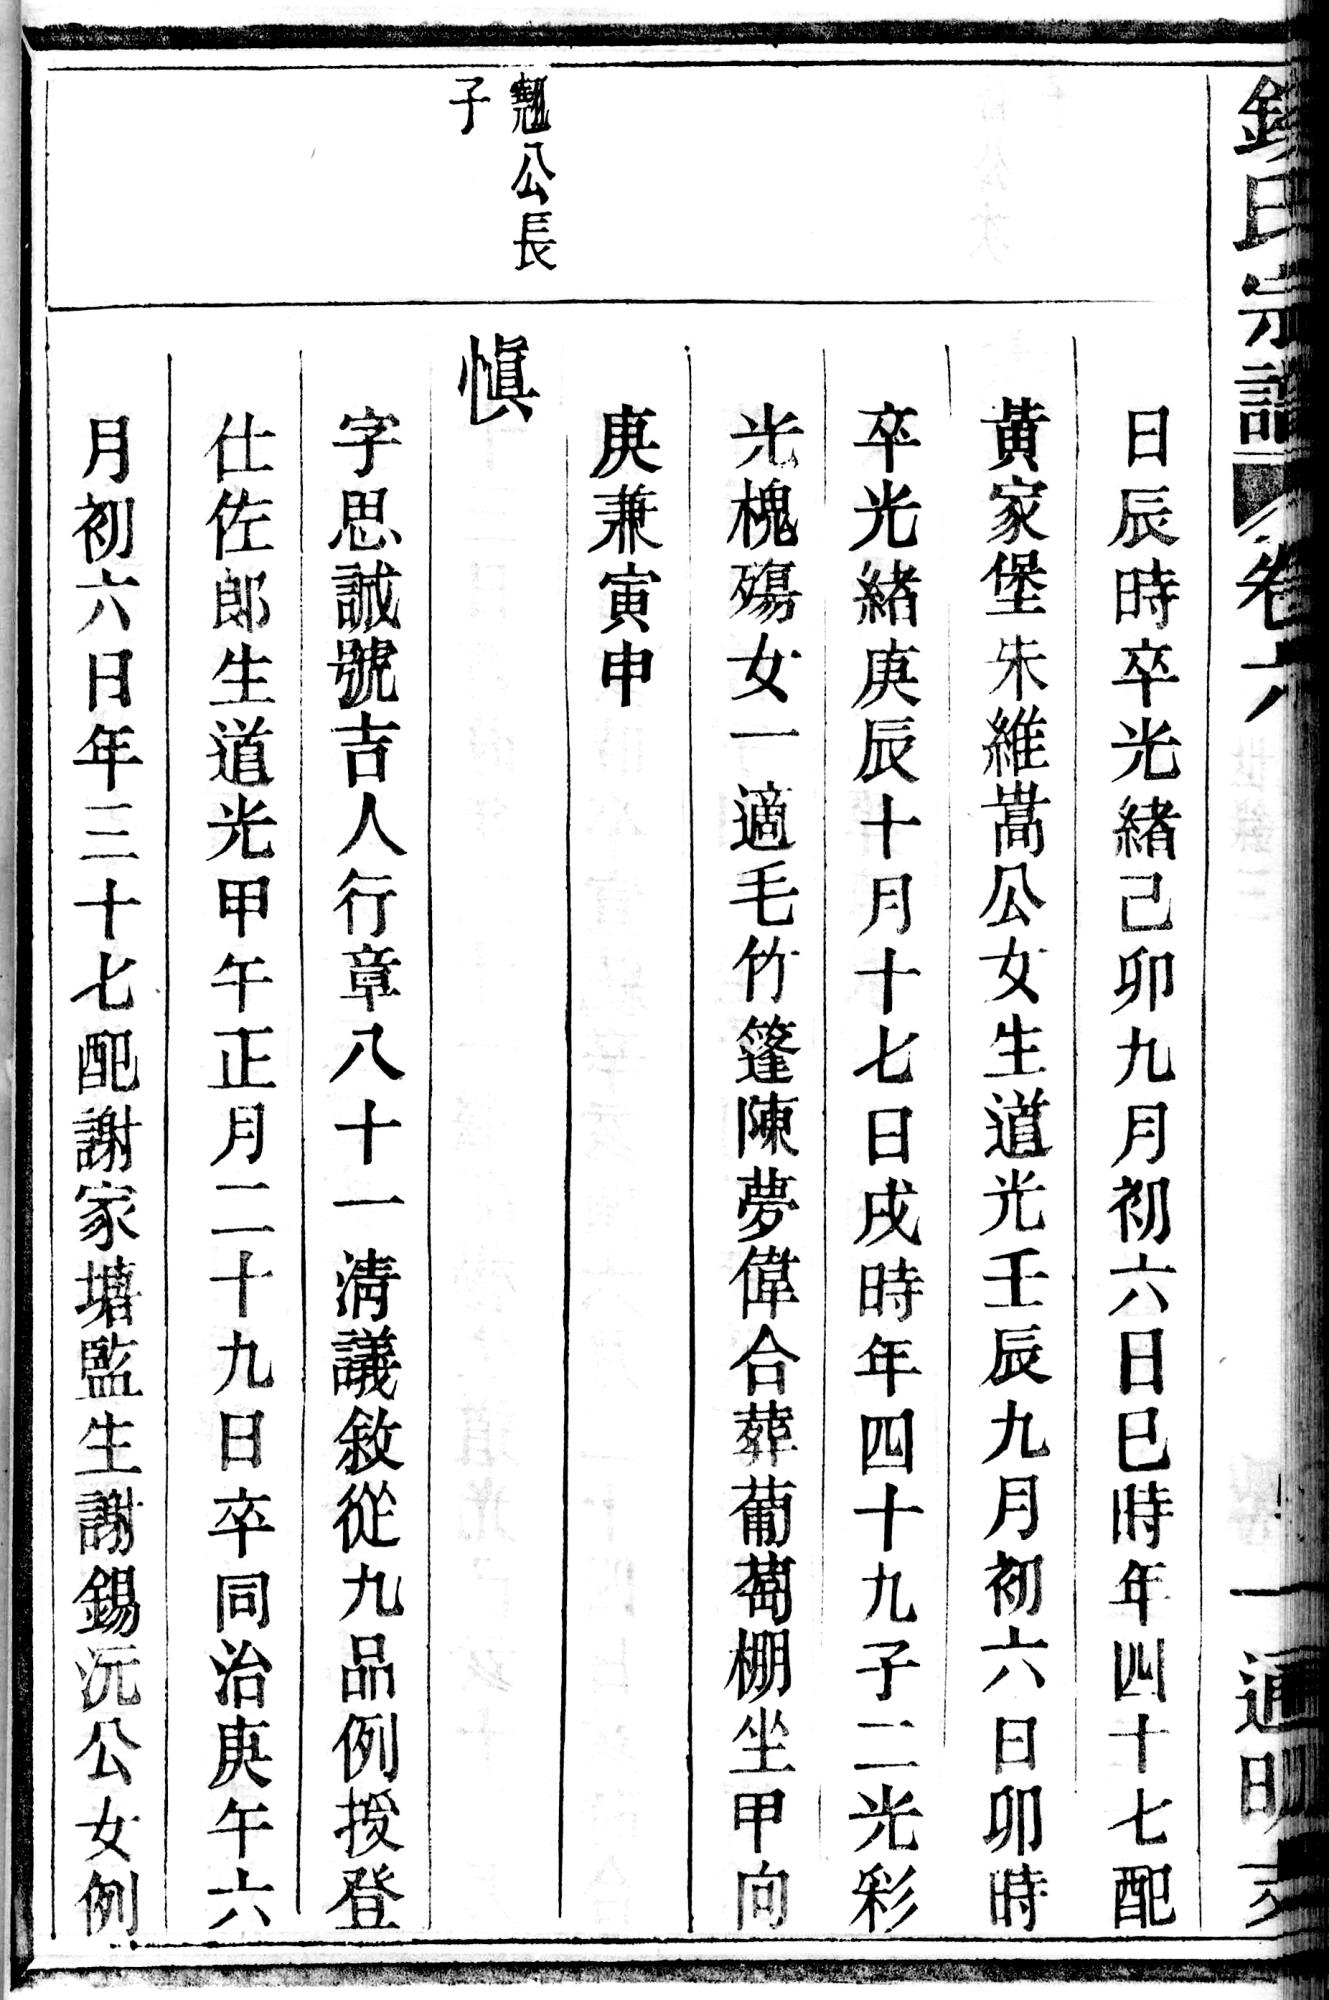 氏宗譜
卷六
日辰時卒光緒己卯九月初六日巳時年四十七配
黃家堡朱維嵩公女生道光壬辰九月初六日卯時
卒光緒庚辰十月十七日戌時年四十九子二光彩
光槐殤女一適毛竹篷陳夢偉合葬葡萄棚坐甲向
庚兼寅申
魁公長
子
慎
字思誠號吉人行章八十一淸議敘從九品例授登
仕佐郎生道光甲午正月二十九日卒同治庚午六
月初六日年三十七配謝家塘監生謝錫沅公女例